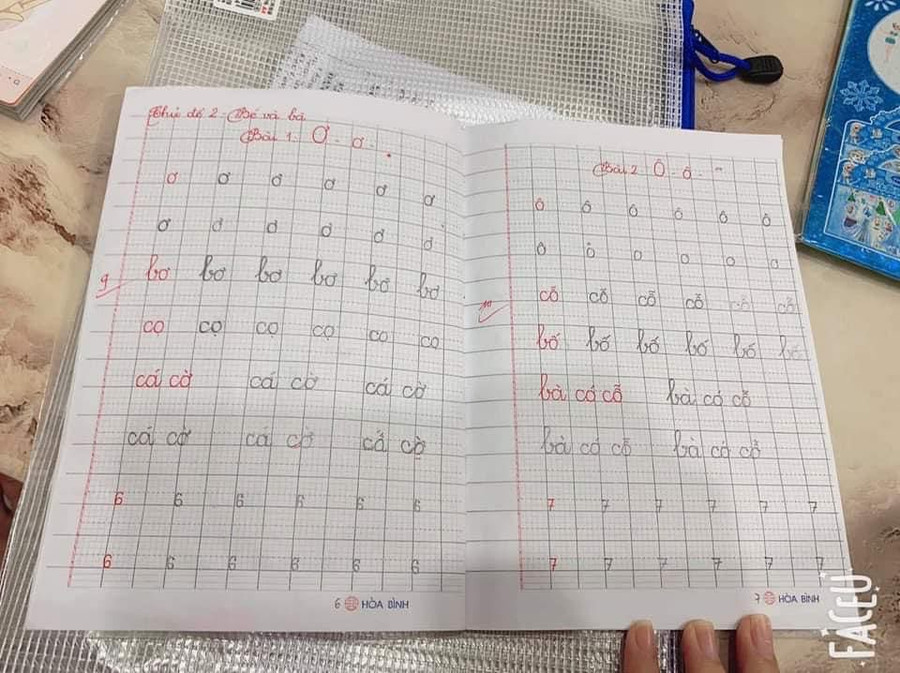 Chủ đề 2: Bé và bà
Bài 1: Ơ - ơ - .
ơ ơ ơ ơ ơ ơ
ơ ơ ơ ơ ơ ơ
9
bơ bơ bơ bơ bơ bơ
cọ cọ cọ cọ cọ cọ
cá cờ cá cờ cá cờ
cá cờ cá cờ cá cờ
6 6 6 6 6 6
6 6 6 6 6 6
6 HÒA BÌNH
Bài 2 Ô - ô - ~
ô ô ô ô ô ô
ô ô o o o o
10
cỗ cỗ cỗ cỗ cỗ cỗ
bố bố bố bố bố bố
bà có cỗ bà có cỗ
bà có cỗ bà có cỗ
7 7 7 7 7 7
7 7 7 7 7 7
7 HÒA BÌNH